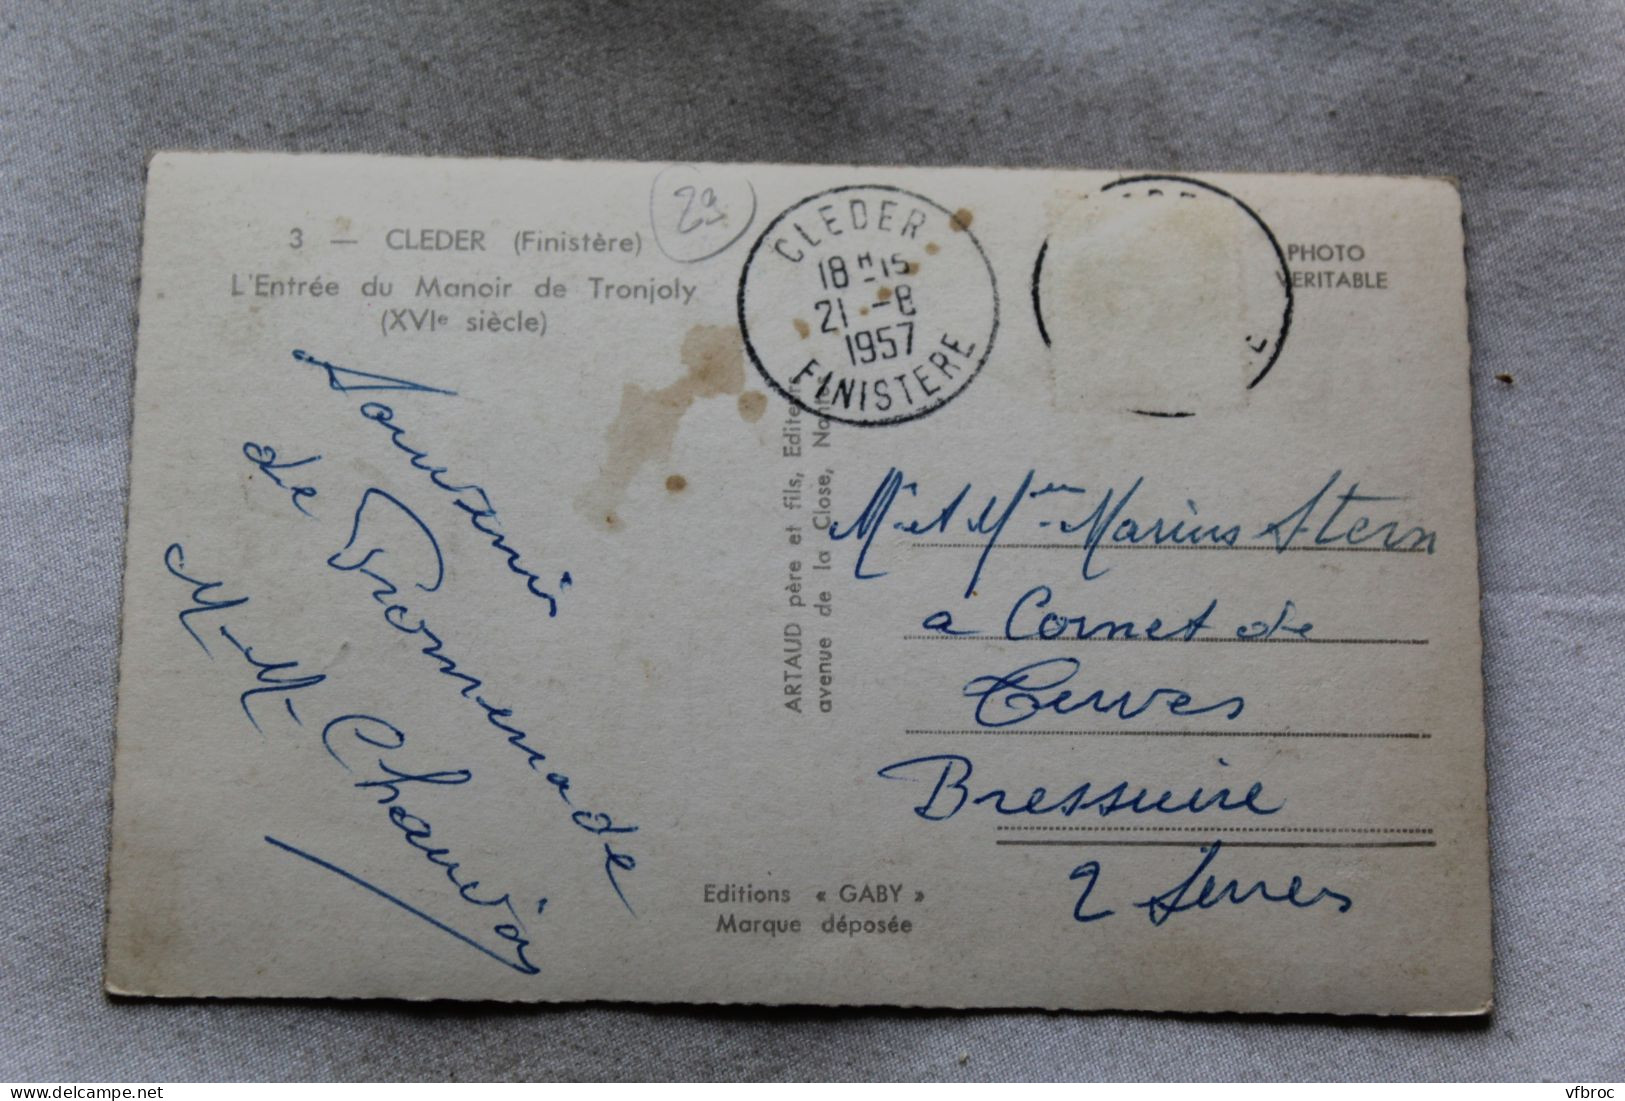 3 — CLEDER (Finistère)
L'Entrée du Manoir de Tronjoly
(XVIe siècle)
29
CLEDER
18 H 15
21 -8
1957
FINISTERE
PHOTO
VERITABLE
Souvenir
de Promenade
M. M. Chauvin
ARTAUD père et fils, Editeurs
avenue de la Close, Nantes
Mr et Mme Marius Stern
a Cornet de
Cerves
Bressuire
2 Sevres
Editions « GABY »
Marque déposée
delcampe.net
vfbroc